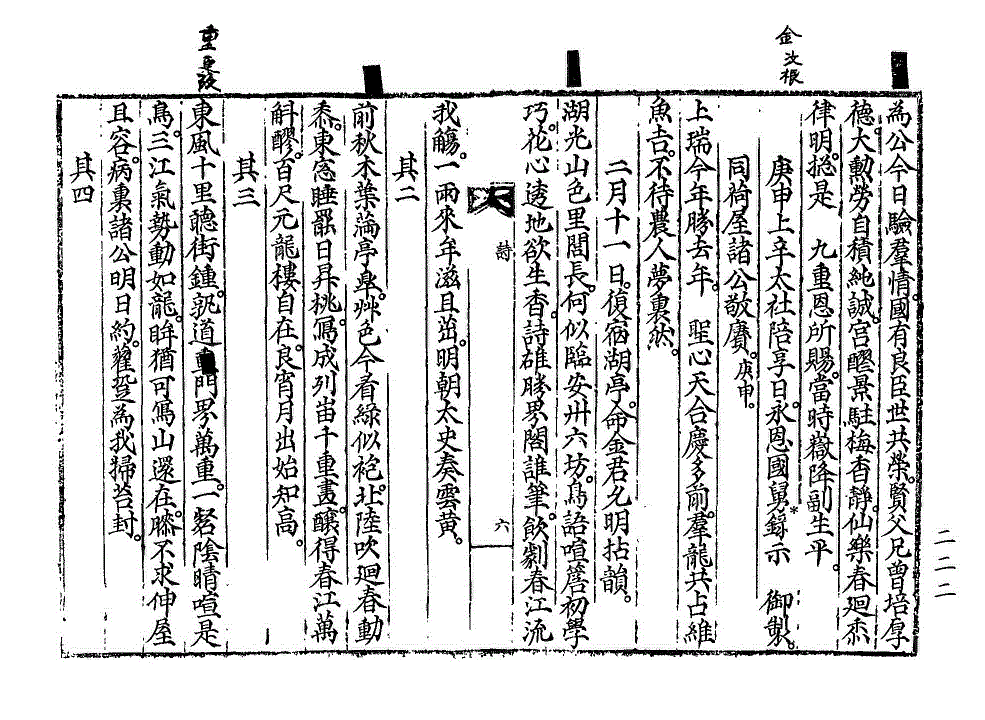 金汝根
重疑
為公今日驗羣情。國有良臣世共榮。賢父兄曾培厚
德。大勳勞自積純誠。宮醪景駐梅香靜。仙樂春廻黍
律明。摠是 九重恩所賜。當時嶽降副生平。
庚申上辛太社陪享日。永恩國舅*錄示 御製。
同荷屋諸公敬賡。庚申。
上瑞今年勝去年。 聖心天合慶多前。羣龍共占維
魚吉。不待農人夢裏然。
二月十一日。復宿湖亭。命金君允明拈韻。
湖光山色里閭長。何似臨安卅六坊。鳥語喧簷初學
巧。花心透地欲生香。詩雄勝界閣誰筆。飮劇春江流
我觴。一雨來年滋且茁。明朝太史奏雲黃。
詩
六
其二
前秋木葉滿亭皐。艸色今看綠似袍。北陸吹廻春動
黍。東窓睡罷日昇桃。寫成列岫千重畫。釀得春江萬
斛醪。百尺元龍樓自在。良宵月出始知高。
其三
東風十里聽街鍾。孰道門界萬重。一磬陰晴喧是
鳥。三江氣勢動如龍。眸猶可寫山還在。膝不求伸屋
且容。病裏諸公明日約。蘿逕為我掃苔封。
其四
二二二